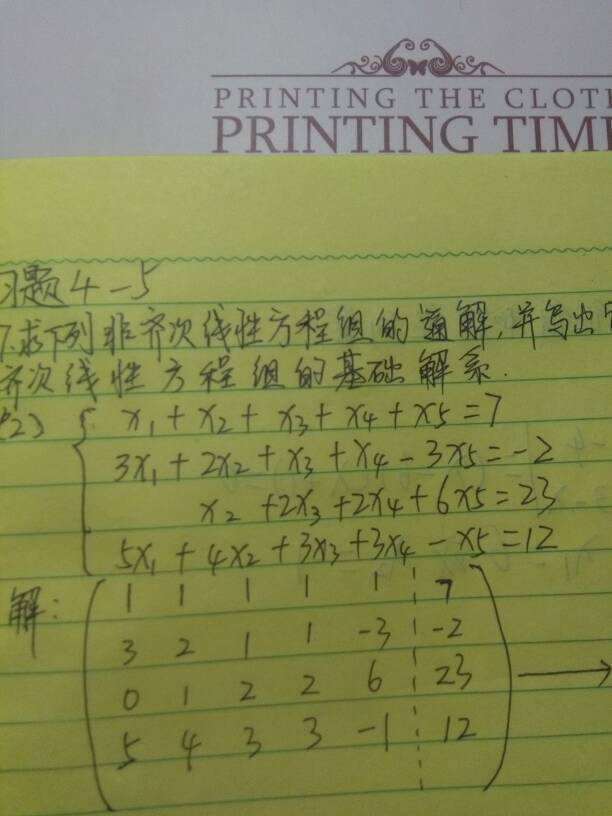 PRINTING THE CLOTH
PRINTING TIME
习题4-5
7.求下列非齐次线性方程组的通解,并写出
齐次线性方程组的基础解系.
(2) { x₁+x₂+x₃+x₄+x₅=7
3x₁+2x₂+x₃+x₄-3x₅=-2
x₂+2x₃+2x₄+6x₅=23
5x₁+4x₂+3x₃+3x₄-x₅=12
解: 1 1 1 1 1 7
3 2 1 1 -3 -2
0 1 2 2 6 23 →
5 4 3 3 -1 12